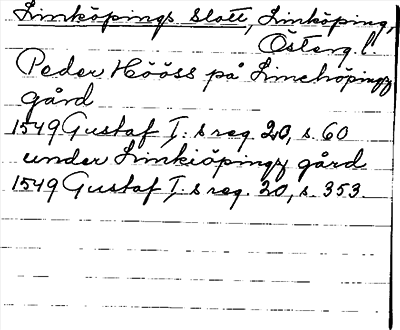 Linköpings slott, Linköping,
Österg. l.
Peder Hööss på Linchöpingz
gård
1549 Gustaf I: s reg. 20, s. 60
under Linkiöpingz gård
1549 Gustaf I: s reg. 20, s. 353.